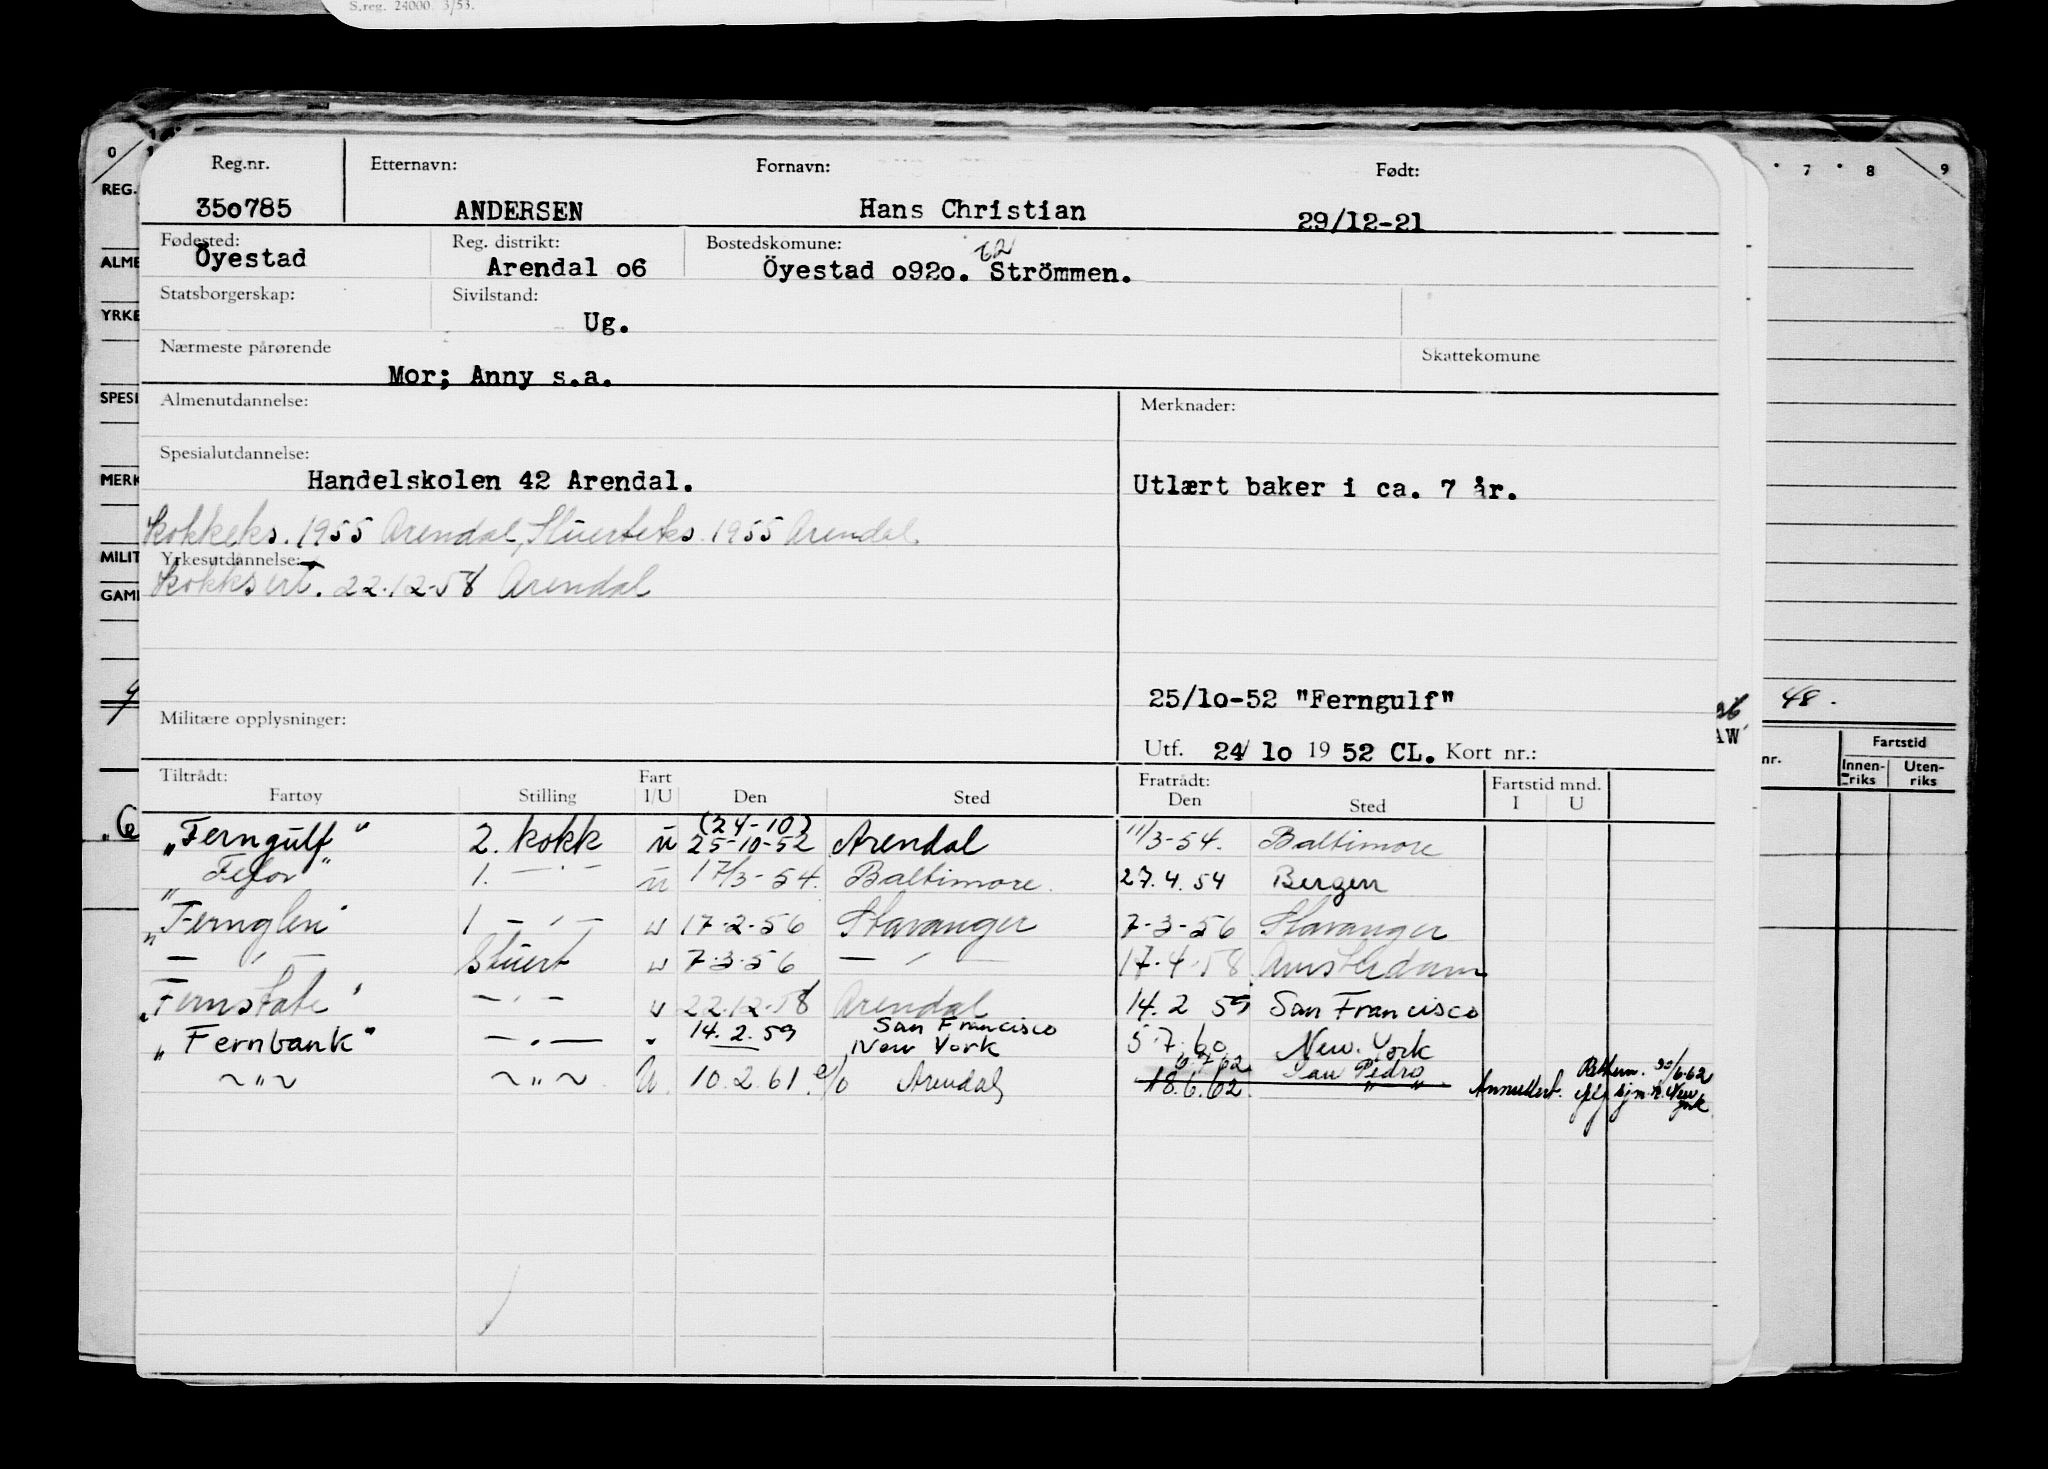 S.reg. 24000. 3/53.
Reg.nr. Etternavn: Fornavn: Født:
350785 ANDERSEN Hans Christian 29/12-21
Fødested: Reg. distrikt: Bostedskomune:
Öyestad Arendal o6 Öyestad o92o. Strömmen.
Statsborgerskap: Sivilstand:
Ug.
Nærmeste pårørende Skattekomune
Mor; Anny s.a.
Almenutdannelse: Merknader:
Spesialutdannelse:
Handelskolen 42 Arendal. Utlært baker i ca. 7 år.
Kokkeks. 1955 Arendal, Stuerteks. 1955 Arendal
Yrkesutdannelse:
Kokksert. 22.12.58 Arendal
25/lo-52 "Ferngulf"
Militære opplysninger:
Utf. 24/ lo 19 52 CL. Kort nr.:
Tiltrådt: Fart Fratrådt: Fartstid mnd.
Fartøy Stilling I/U Den Sted Den Sted I U
(24-10)
"Ferngulf" 2. kokk u 25-10-52 Arendal 11/3-54. Baltimore
"Fejor" 1. — " — u 17/3-54. Baltimore. 27.4.54 Bergen
"Fernglen" 1 — " — u 17.2.56 Stavanger 7.3.56 Stavanger
— " — Stuert u 7.3.56 — " — 17.4.58 Amsterdam
"Fernstate" — " — u 22.12.58 Arendal 14.2 59 San Francisco
"Fernbank" — " — " 14.2.59 San Francisco New York 5.7.60 New York
~ " ~ ~ " ~ U. 10.2.61 e/o Arendal 6.7.62 San Pedro
18.6.62. " " Annullert. 30/6-62
REG.
ALME
YRKE
SPESI
MERK
MILIT
GAML
0 7 8 9
48.
AW
nr. Fartstid
Innen-riks Uten-riks